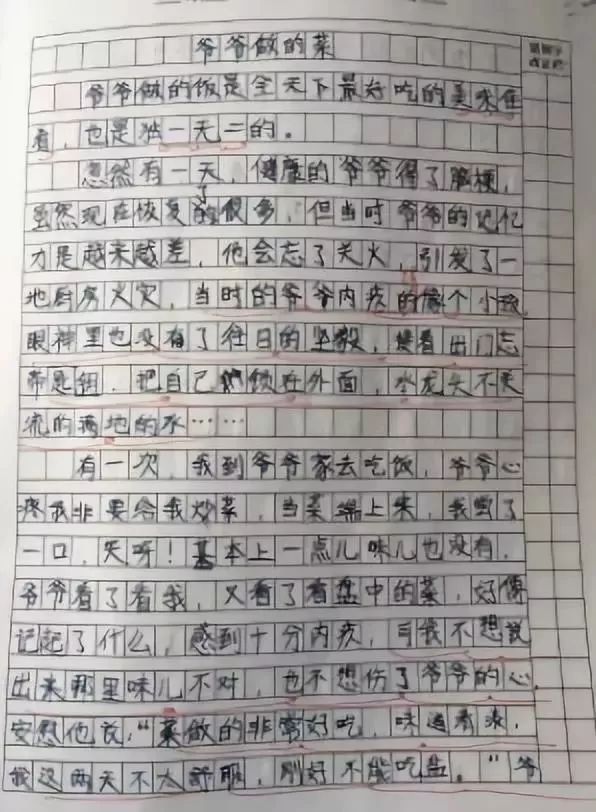 爷爷做的菜
爷爷做的饭是全天下最好吃的美味佳
肴，也是独一无二的。
忽然有一天，健康的爷爷得了脑梗，
虽然现在恢复了很多，但当时爷爷的记忆
力是越来越差，他会忘了关火，引发了一
地厨房火灾，当时的爷爷内疚的像个小孩
眼神里也没有了往日的坚毅，接着出门忘
带匙，把自己锁在外面，水龙头不关
流的满地的水……
有一次，我到爷爷家去吃饭，爷爷心
疼我非要给我炒菜，当菜端上来，我尝了
一口，天呀！基本上一点儿味儿也没有，
爷爷看了看我，又看了看盘中的菜，好像
记起了什么，感到十分内疚，可我不想说
出来那里味儿不对，也不想伤了爷爷的心，
安慰他说：“菜做的非常好吃，味道有淡，
我这两天不太舒服，刚好不能吃盐。”爷